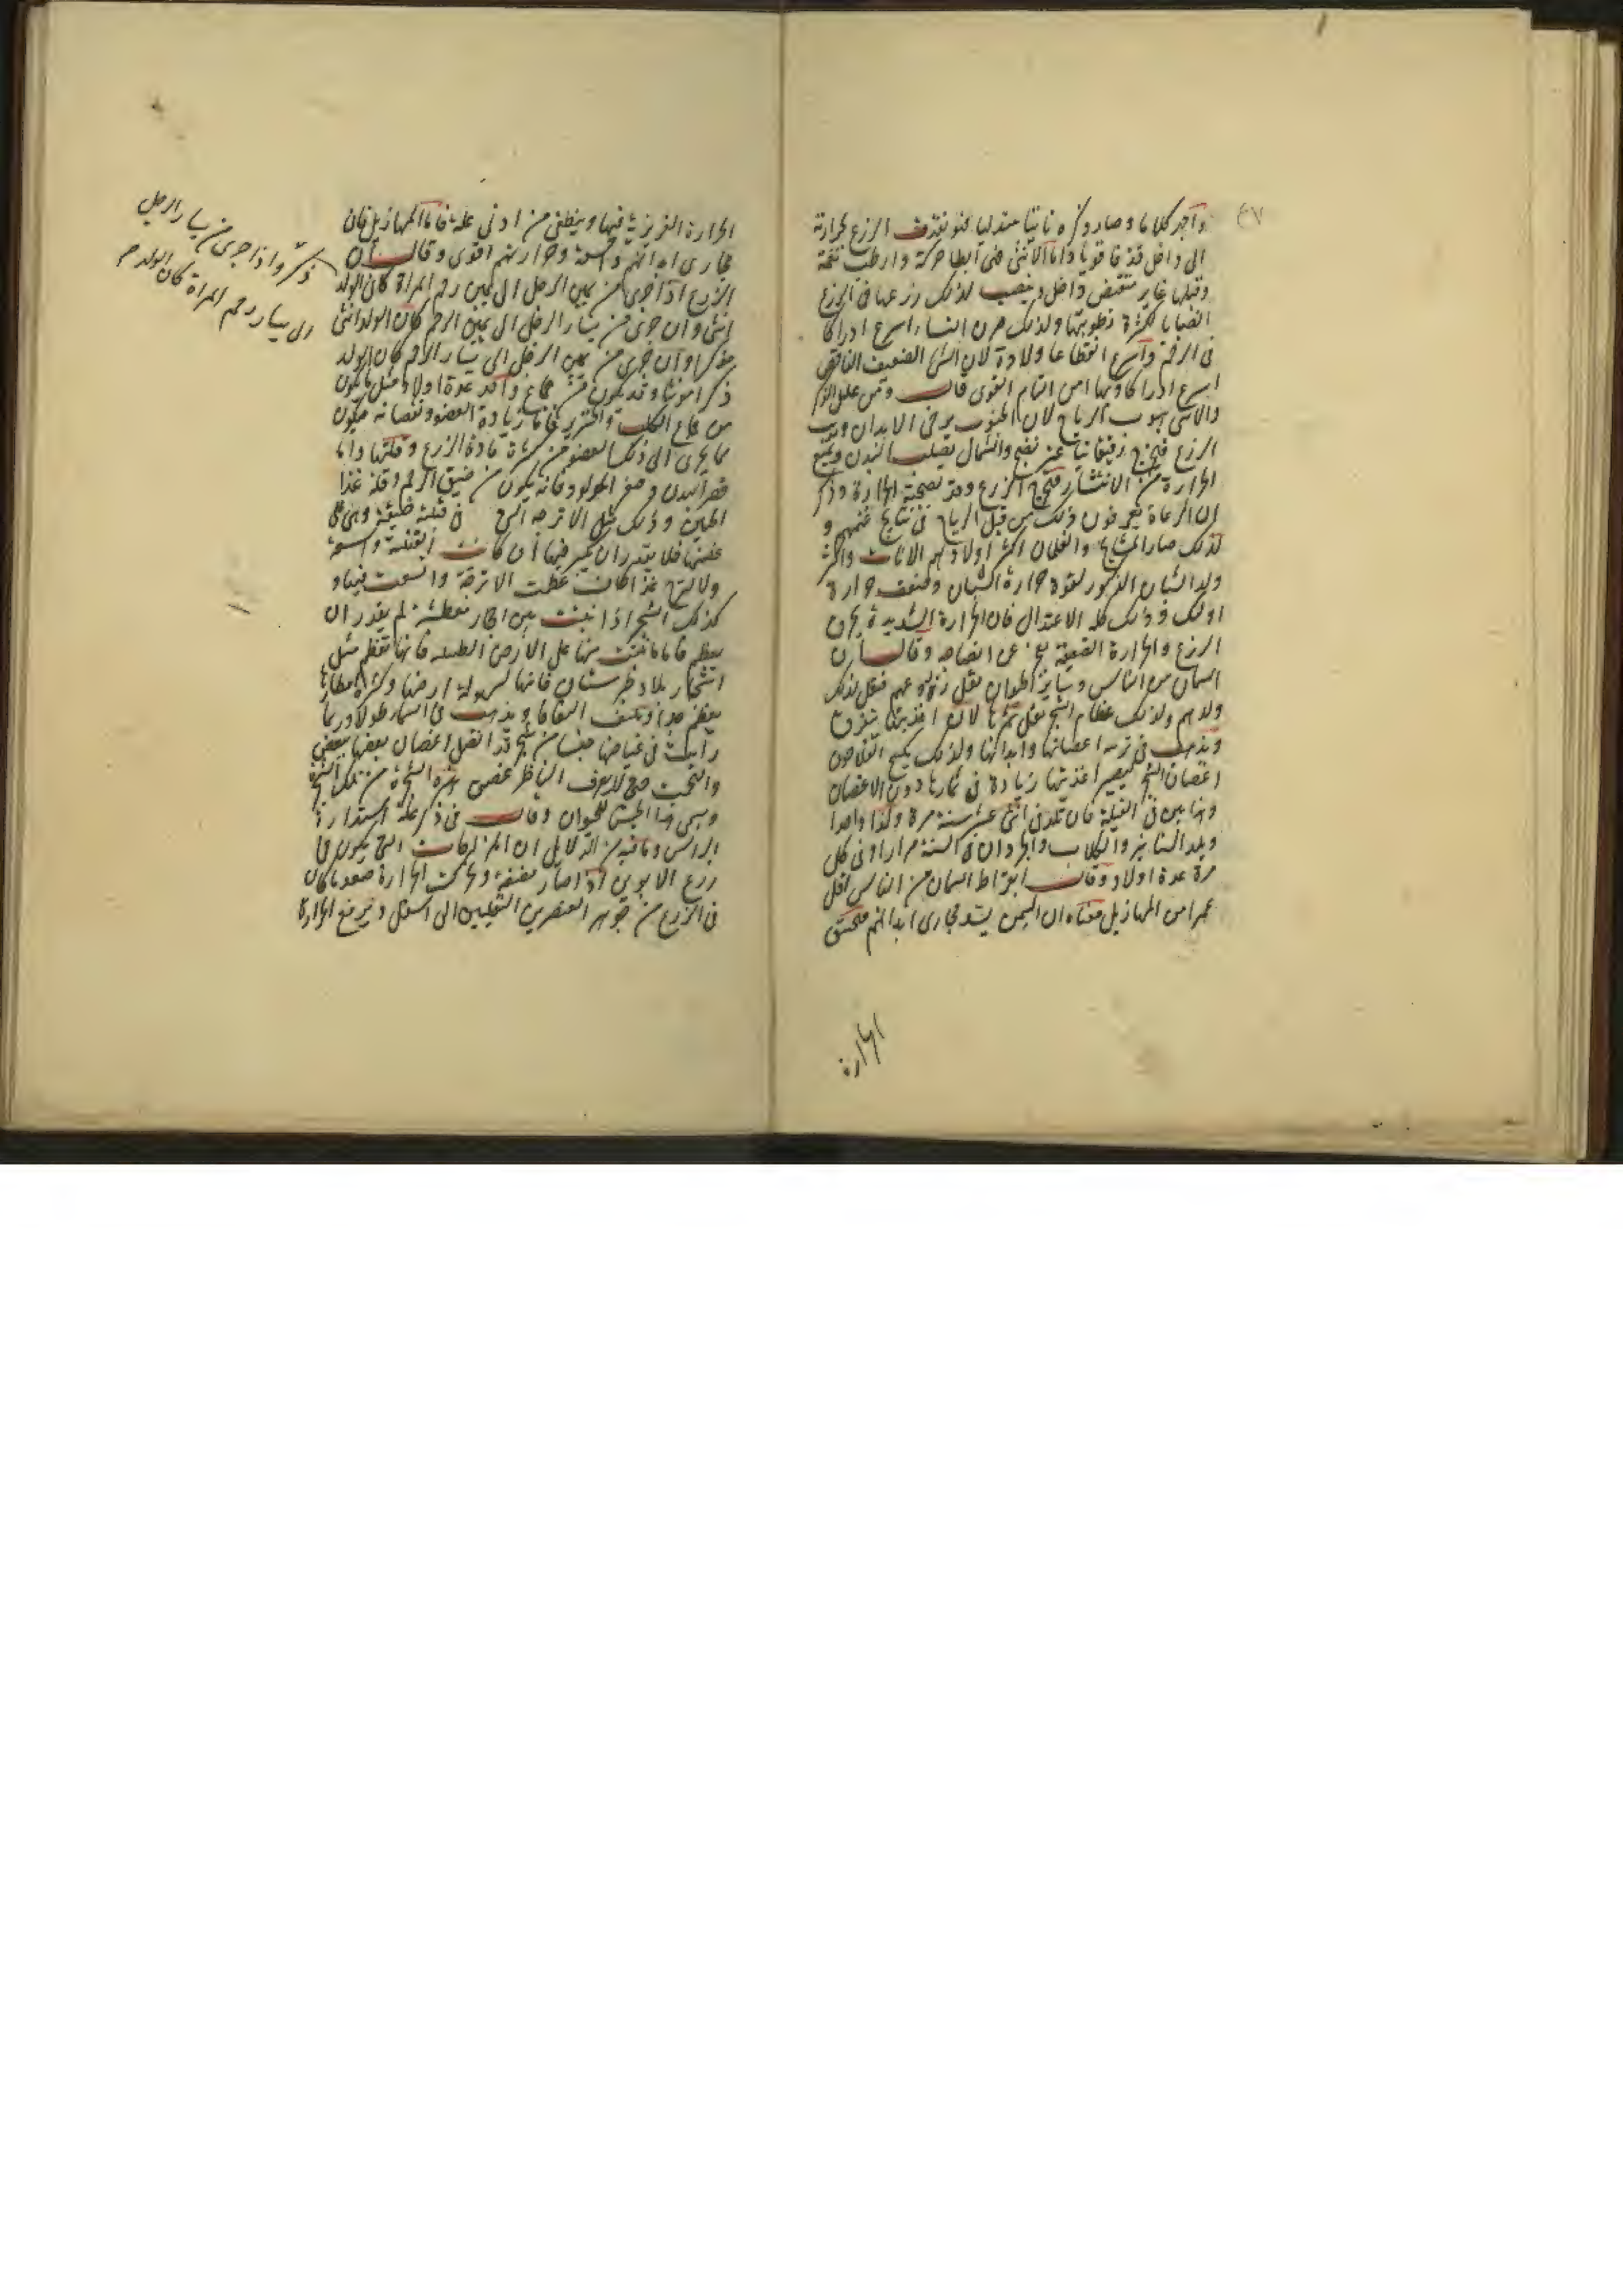 ٤٧
واجهر كلاما وصار ذكره ناتيا متدليا فهو يقذف الزرع بحرارته
الى داخل قذفا قويا واما الانثى فهى ابطا حركة وارطب نغمة
وقبلها غاير منقبض داخل وينصب لذلك زرعها فى الرحم
انصبابا لكثرة رطوبتها ولذلك صرن النساء اسرع ادراكا
فى الرحم واسرع انقطاعا ولادة لان الشى الضعيف الناقص
اسرع ادراكا وتماما من التام القوى قال ومن علل الذكر
والانثى هبوب الرياح لان الجنوب يرخى الابدان ويذيب
الزرع فيخرج رقيقا نيا غير نضج والشمال يصلب البدن ويمنع
الحرارة من الانتشار فيخرج الزرع وقد نضجته الحرارة وذكر
ان الرعاة يعرفون ذلك من قبل الرياح فى نتاج غنمهم و
لذلك صار المشايخ والغلمان اكثر اولادهم الاناث واكثر
ولد الشبان الذكور لقوة حرارة الشبان وضعف حرارة
اولئك وذلك كله الاعتدال فان الحرارة الشديدة يحرق
الزرع والحرارة الضعيفة يعجز عن انضاجه وقال ان
السمان من الناس وساير الحيوان يقل زرعهم فيقل لذلك
ولدهم ولذلك عظام الشجر يقل ثمرها لان اغذيتها يتفرق
ويذهب فى تربية اغصانها وابدانها ولذلك يكسح الفلاحون
اغصان الشجر ليصير اغذيتها زيادة فى ثمارها دون الاغصان
وهذا بين فى الفيلة فان تلد فى اثنى عشر سنة مرة ولدا واحدا
ويلد السنانير والكلاب والجرذان فى السنة مرارا وفى كل
مرة عدة اولاد وقال ابقراط السمان من الناس اقل
عمرا من المهازيل معناه ان الشحم يسد مجارى ابدانهم فيختنق
الحرارة
الحرارة الغريزية فيها وينطفى من ادنى علة فاما المهازيل فان
مجارى ابدانهم واسعة وحرارتهم اقوى وقال ان
الزرع اذا جرى من يمين الرجل الى يمين رحم المراة كان الولد
ذكرا واذا جرى من يسار الرجل
الى يسار رحم المراة كان الولد
انثى وان جرى من يسار الرجل الى يمين الرحم كان الولد انثى
مذكرا وان جرى من يمين الرجل الى يسار الرحم كان الولد
ذكرا مونثا وقد يكون من جماع واحد عدة اولاد مثل ما يكون
من جماع الكلب والخنزير فاما زيادة العضو ونقصانه فيكون
مما يجرى الى ذلك العضو من كثرة مادة الزرع وقلتها واما
قصر البدن وصغر المولود فانه يكون من ضيق الرحم وقلة غذا
الجنين وذلك مثل الاترجه التى فى قنينة ضيقة وهى على
غصنها فلا يقدر ان يكبر فيها ان كانت القنينة واسعة
ولا لها غذا كاف عظمت الاترجة واتسعت فيها و
كذلك الشجر اذا نبتت بين احجار معطشة لم يقدر ان
يعظم فاما ما نبتت منها على الارض الطيبة فانها تعظم مثل
اشجار بلاد طبرستان فانها لسهولة ارضها وكثرة امطارها
يعظم جدا ويلتف التفافا ويذهب فى السما طولا وربما
رأيت فى غياضها غيضان شجر قد اتصل اغصان بعضها ببعض
والتحمت حتى لا يعرف الناظر غصن هذه الشجرة من تلك الشجرة
وسمى هذا الجنس للحيوان وقال فى ذكر علة استدارة
الراس وما فيه من الدلايل ان المنزلقات التى يكون فى
زرع الابوين اذا صار مضغة وتحركت الحرارة صعد ما كان
فى الزرع من جوهر العنصرين الثقيلين الى اسفل ويرتفع الحرارة